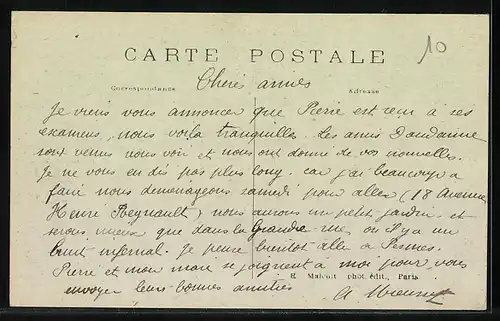 10
CARTE POSTALE
Correspondance
Adresse
Chers amies
Je viens vous annoncer que Pierre est reçu à ses
examens, nous voilà tranquilles. Les amis Dandanne
sont venus nous voir et nous ont donné de vos nouvelles.
Je ne vous en dis pas plus long. car j'ai beaucoup à
faire nous demenageons samedi pour aller (18 Avenue
Henri Regnault) nous aurons un petit jardin et
serons mieux que dans la Grande rue, ou il y a un
bruit infernal. Je pense bientôt aller à
Pierre et mon mari se joignent à moi pour vous
E Malcuit phot. édit., Paris
envoyer leurs bonnes amitiés
A